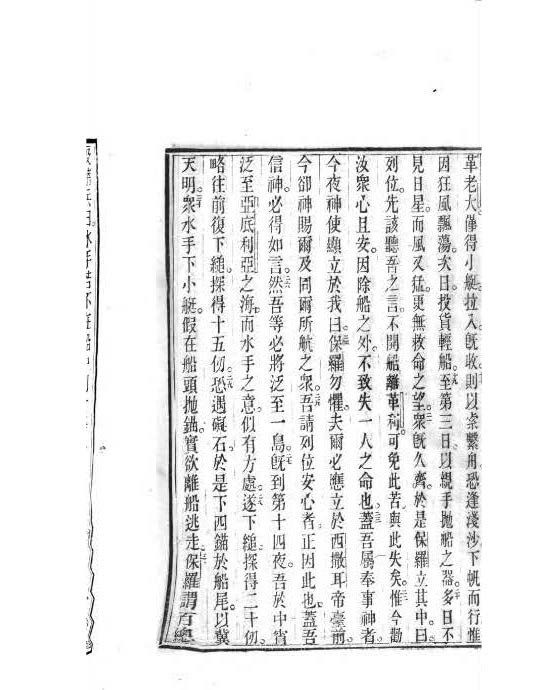 革老大僅得小艇拉入旣收則以索繫舟恐逢淺沙下帆而行惟
因狂風飄蕩次日投貨輕船至第三日以親手拋船之器多日不
見日星而風又猛更無救命之望衆旣久齋於是保羅立其中曰
列位先該聽吾之言不開船離革利可免此苦與此失矣惟今勸
汝衆心且安因除船之外不致失一人之命也蓋吾屬奉事神者
今夜神使顯立於我曰保羅勿懼夫爾必應立於西撒耳帝臺前
今卻神賜爾及同爾所航之衆吾請列位安心者正因此也蓋吾
信神必得如言然吾等必將泛至一島旣到第十四夜吾於中宵
泛至亞底利亞之海而水手之意似有方處遂下縋探得二十仞
略往前復下縋探得十五仞恐遇礙石於是下四錨於船尾以冀
天明衆水手下小艇假在船頭拋錨實欲離船逃走保羅謂百總